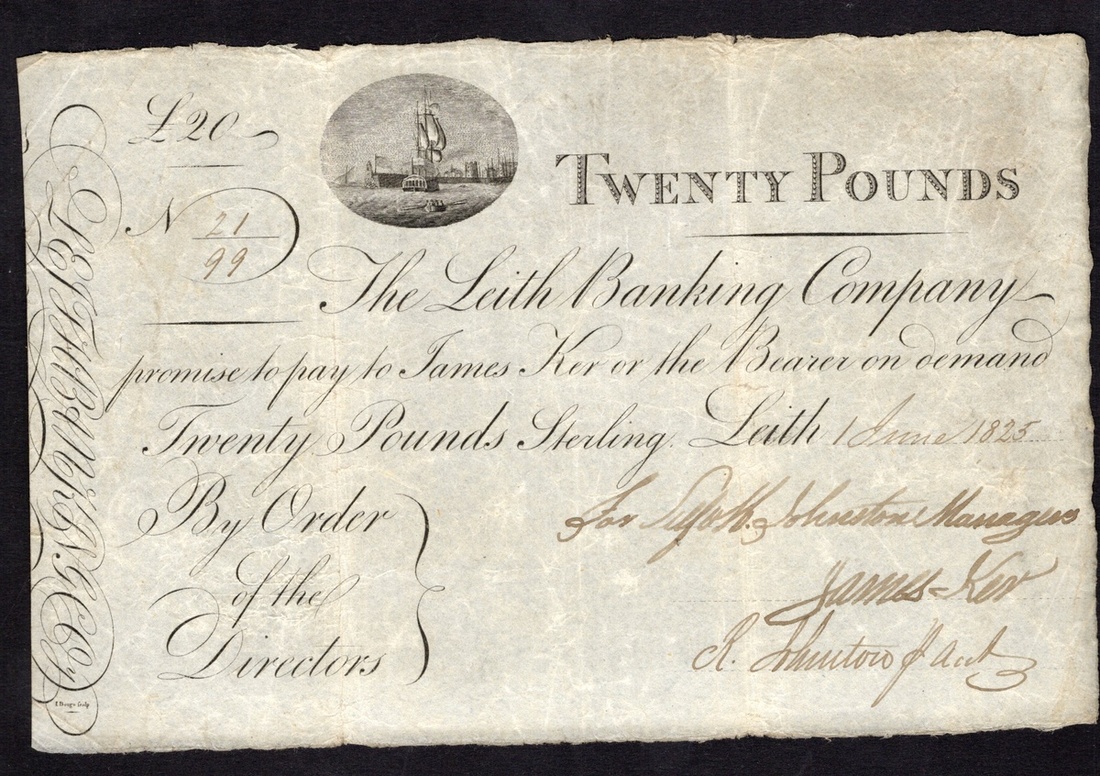 £20
TWENTY POUNDS
N 21/99
The Leith Banking Company
promise to pay to James Ker or the Bearer on demand
Twenty Pounds Sterling. Leith 1 June 1825
By Order
of the
Directors
For Johnston Manager
James Ker
R. Johnston Acct
LEITH BANKING COY